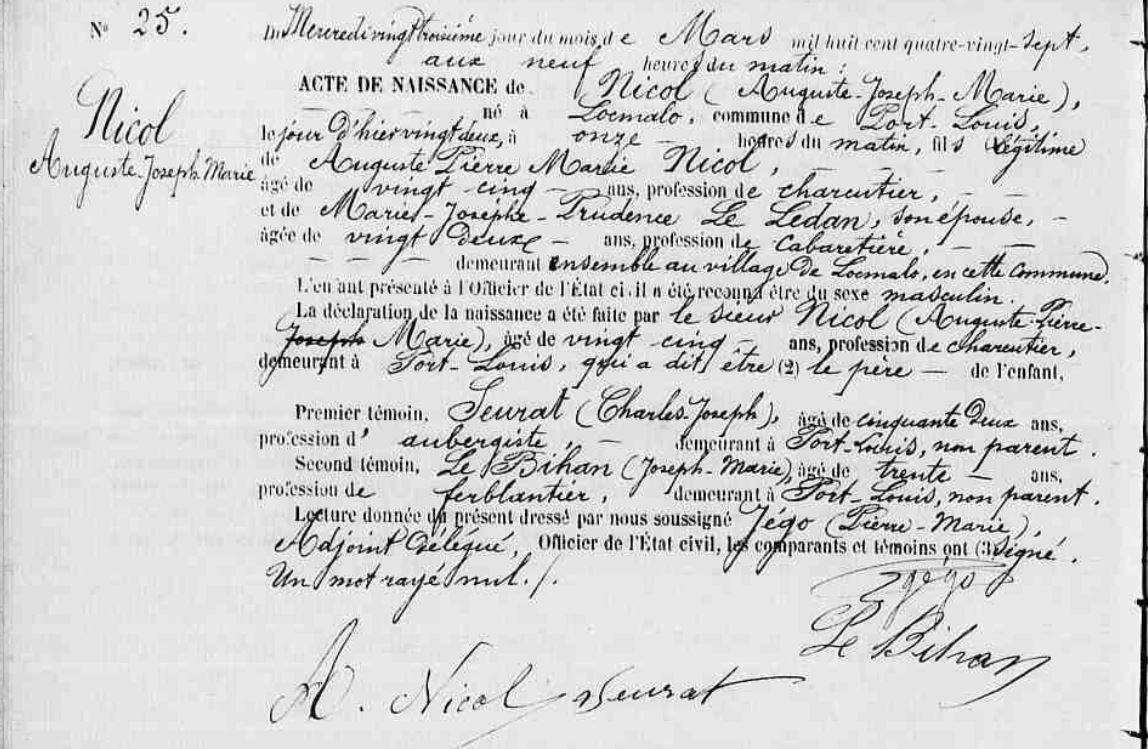 N° 25.
Du Mercredi vingt troisième jour du mois de Mars mil huit cent quatre-vingt-sept,
aux neuf heures du matin :
ACTE DE NAISSANCE de Nicol (Auguste-Joseph-Marie),
Nicol
Auguste-Joseph Marie
né à Locmalo, commune de Port-Louis,
le jour d'hier vingt deux, à onze heures du matin, fils légitime
de Auguste Pierre Marie Nicol,
âgé de vingt cinq ans, profession de charcutier,
et de Marie-Josèphe-Prudence Le Lédan, son épouse,
âgée de vingt deux ans, profession de cabaretière,
demeurant ensemble au village de Locmalo, en cette commune.
L'enfant présenté à l'Officier de l'État civil a été reconnu être du sexe masculin.
La déclaration de la naissance a été faite par le sieur Nicol (Auguste-Pierre-
Joseph Marie), âgé de vingt cinq ans, profession de charcutier,
demeurant à Port-Louis, qui a dit être (2) le père de l'enfant.
Premier témoin, Seurat (Charles-Joseph), âgé de cinquante deux ans,
profession d' aubergiste, demeurant à Port-Louis, non parent.
Second témoin, Le Bihan (Joseph-Marie), âgé de trente ans,
profession de ferblantier, demeurant à Port-Louis, non parent.
Lecture donnée du présent dressé par nous soussigné Jégo (Pierre-Marie),
Adjoint délégué, Officier de l'État civil, les comparants et témoins ont (3) signé.
Un mot rayé nul./.
Jégo
Le Bihan
A. Nicol Seurat